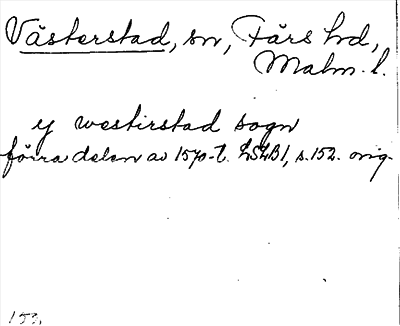 Västerstad, sn, Färs hd,
Malm. l.
ij westirstad sogn
förra delen av 1570-t. LSLB1, s. 152. orig.
153.